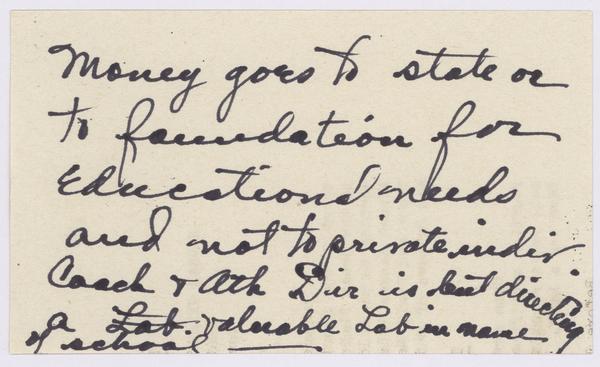 Money goes to state or
to foundation for
Educational needs
and not to private indiv.
Coach & Ath Dir is but directing
a Lab. Valuable Lab in name
of school —